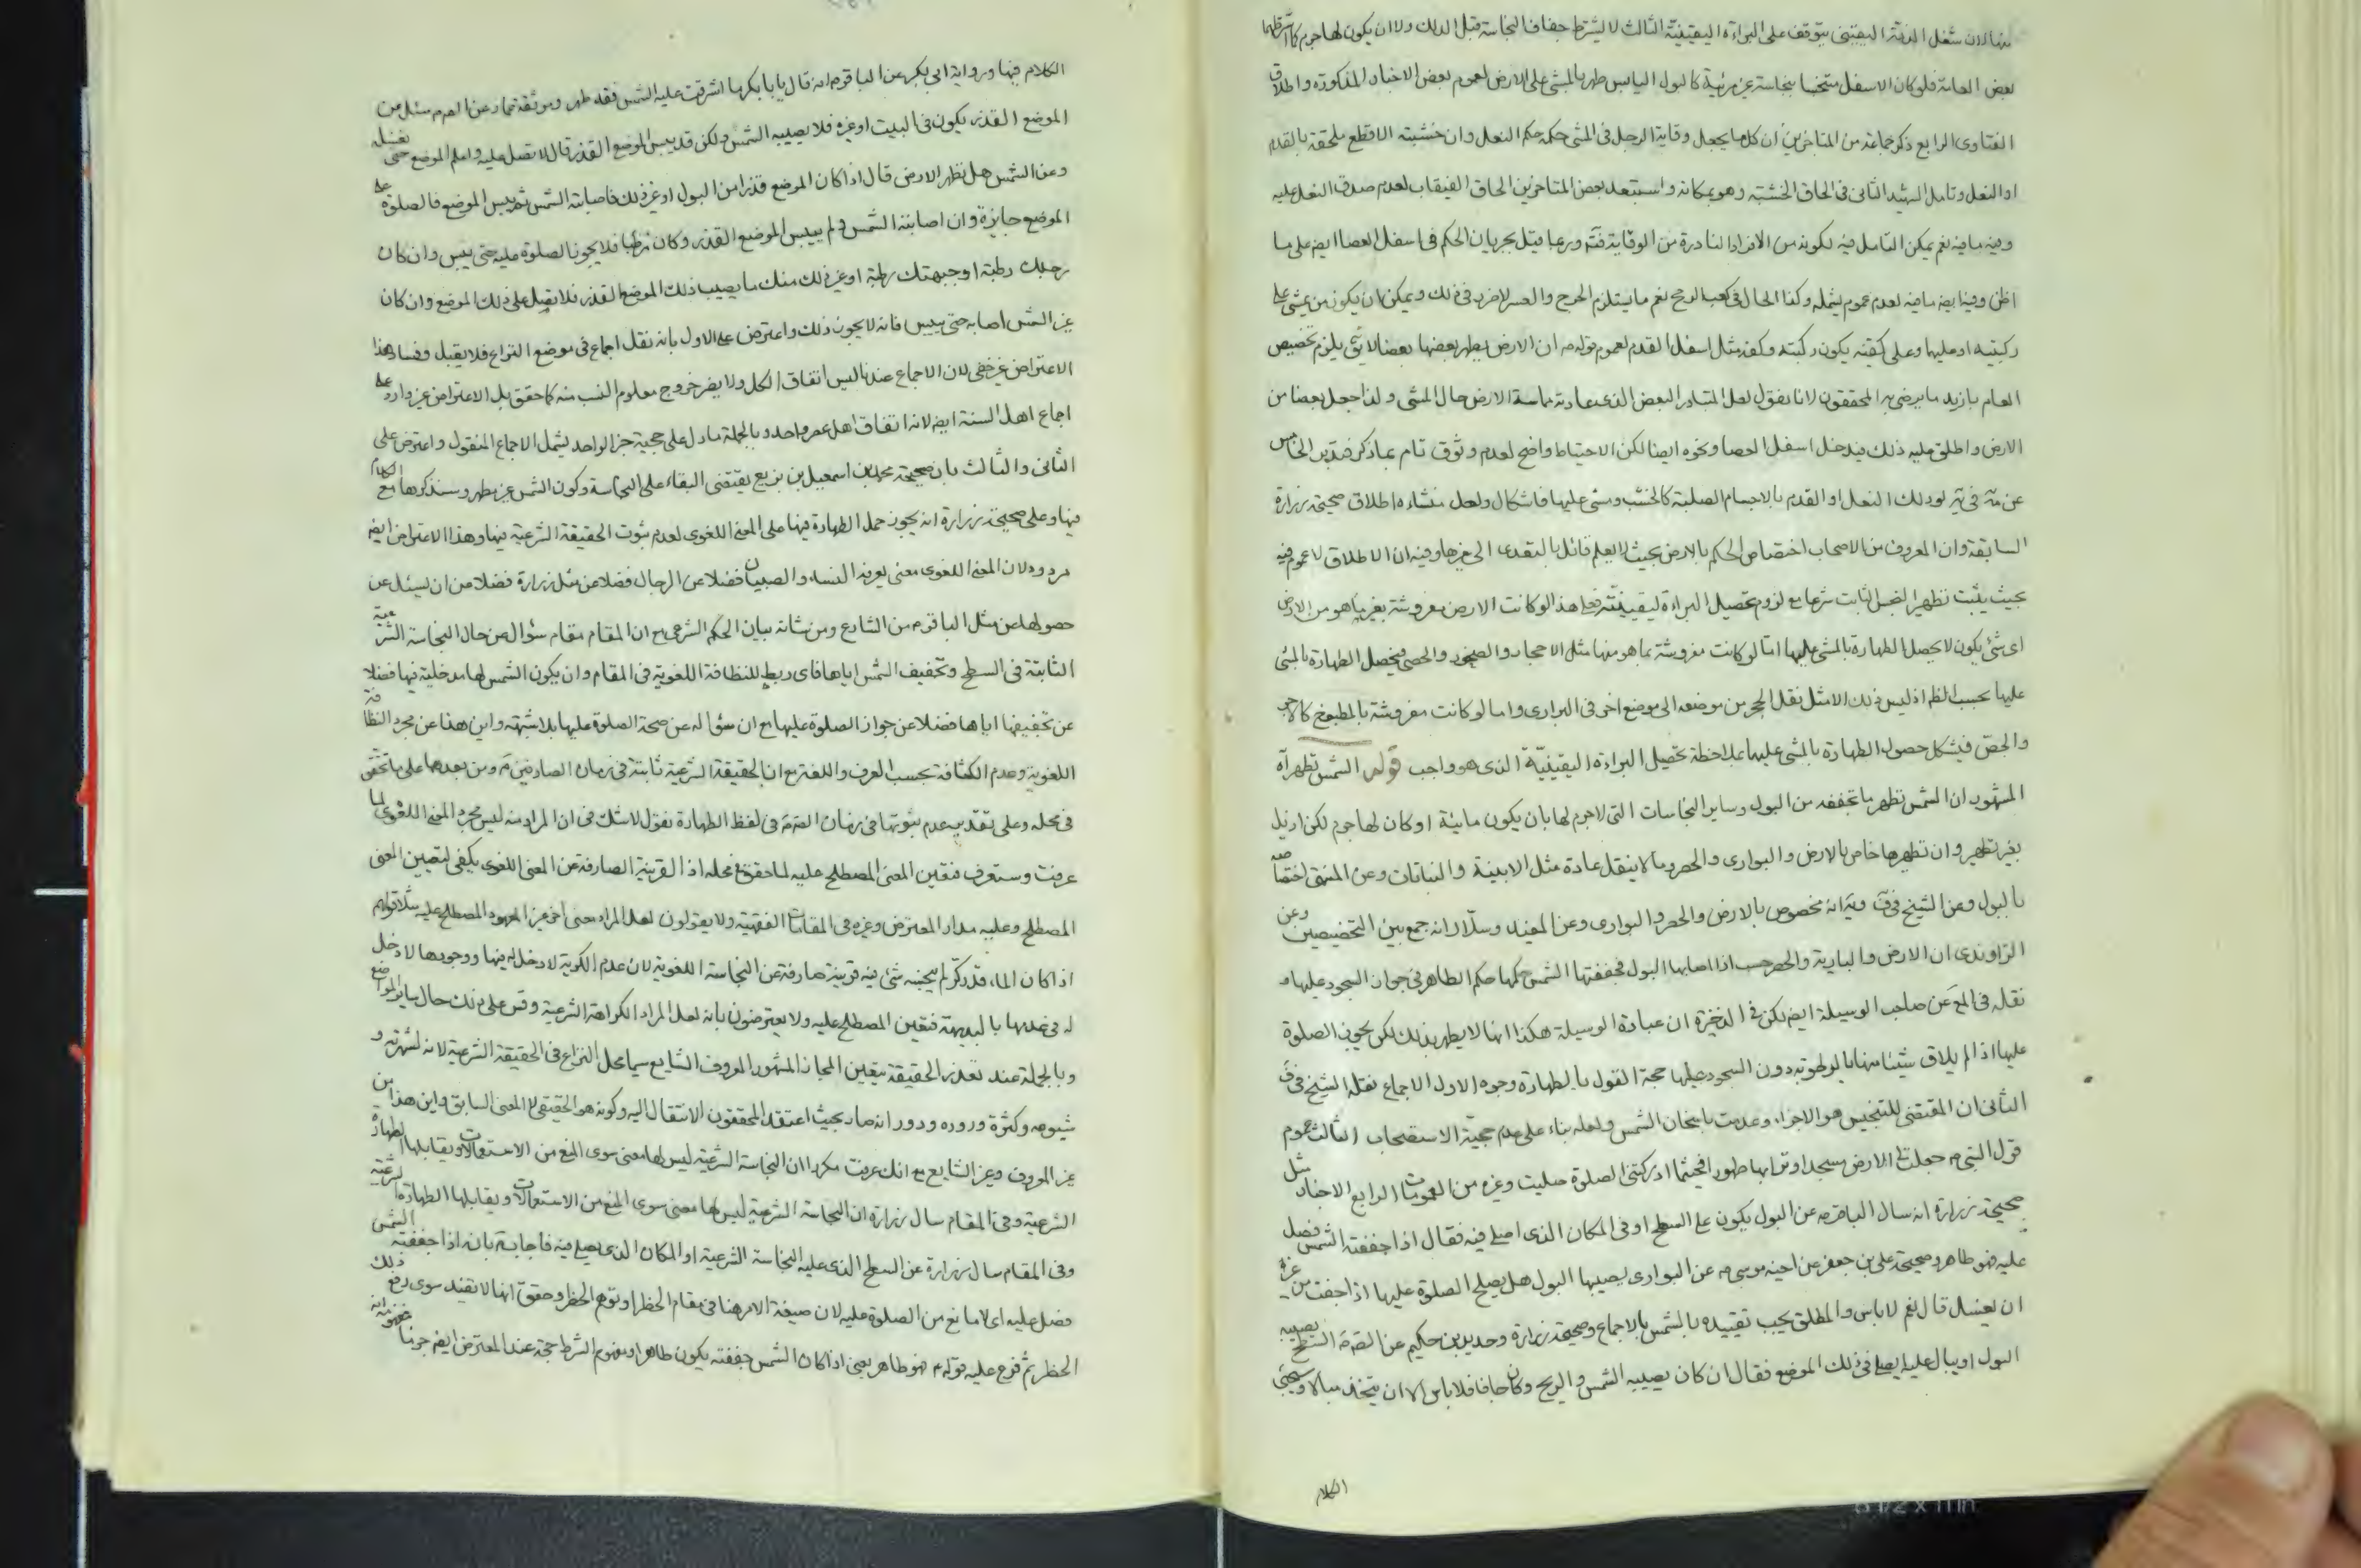 شغل الذمة اليقيني يتوقف على البراءة اليقينية الثالث لا يشترط جفاف النجاسة قبل الدلك ولا ان يكون لها جرم كما اشترطهما
بعض العامة فلو كان الاسفل متنجسا بنجاسة غير مرئية كالبول اليابس طهر بالمشي على الارض لعموم بعض الاخبار المذكورة واطلاق
الفتاوى الرابع ذكر جماعة من المتاخرين ان كل ما يجعل وقاية الرجل في المشي حكمه حكم النعل وان خشبته الاقطع ملحقة بالقدم
او النعل وتامل الشهيد الثاني في الحاق الخشبة وهو بمكانه واستبعد بعض المتاخرين الحاق القبقاب لعدم صدق النعل عليه
وفيه ما فيه نعم يمكن التامل فيه لكونه من الافراد النادرة من الوقاية وربما قيل بجريان الحكم في اسفل العصا ايض على ما
اظن وفيه ايض ما فيه لعدم عموم يشمله وكذا الحال في كعب الرمح نعم ما يستلزم الحرج والعسر لا ضرر في ذلك ويمكن ان يكون من يمشي على
ركبتيه او عليها وعلى كفيه يكون ركبته وكفه مثل اسفل القدم لعموم قوله ص ان الارض يطهر بعضها بعضا لا يقال يلزم تخصيص
العام بازيد ما يرضى به المحققون لانا نقول لعل المتبادر البعض الذي عادته مماسة الارض حال المشي ولذا جعل بعضا من
الارض واطلق عليه ذلك فيدخل اسفل العصا ونحوه ايضا لكن الاحتياط واضح لعدم وثوق تام بما ذكر فتدبر الخامس
عن مة في ية لو دلك النعل او القدم بالاجسام الصلبة كالخشب ومشى عليها فاشكال ولعل منشاءه اطلاق صحيحة زرارة
السابقة وان المعروف من الاصحاب اختصاص الحكم بالارض بحيث لا يعلم قائل بالتعدي الى غيرها وفيه ان الاطلاق لا عموم فيه
بحيث يثبت تطهير النجس الثابت شرعا مع لزوم تحصيل البراءة اليقينية فعلى هذا لو كانت الارض مفروشة بغير ما هو من الارض
اي شئ يكون لا يحصل الطهارة بالمشي عليها اما لو كانت مفروشة بما هو منها مثل الاحجار والصخور والحصى فيحصل الطهارة بالمشي
عليها بحسب الظم اذ ليس ذلك الا مثل نقل الحجر من موضعه الى موضع اخر في البراري واما لو كانت مفروشة بالمطبوخ كالاجر
والجص فيشكل حصول الطهارة بالمشي عليها بملاحظة تحصيل البراءة اليقينية الذي هو واجب قوله الشمس تطهر اه
المشهور ان الشمس تطهر ما تجففه من البول وساير النجاسات التي لا جرم لها بان يكون مايئة او كان لها جرم لكن ازيل
بغير تطهير وان تطهيرها خاص بالارض والبواري والحصر وما لا ينقل عادة مثل الابنية والنباتات وعن المنتهى اختصاصه
بالبول وعن الشيخ في ف انه مخصوص بالارض والحصر والبواري وعن المفيد وسلار انه جمع بين التخصيصين وعن
الراوندي ان الارض والبارية والحصر حسب اذا اصابها البول فجففتها الشمس حكمها حكم الطاهر في جواز السجود عليها و
نقله في المع عن صاحب الوسيلة ايض لكن في الذخيرة ان عبارة الوسيلة هكذا انها لا يطهر بذلك لكن يجوز الصلوة
عليها اذا لم يلاق شيئا منها بالرطوبة دون السجود عليها حجة القول بالطهارة وجوه الاول الاجماع نقله الشيخ في ف
الثاني ان المقتضي للتنجيس هو الاجزاء وعدمت باسخان الشمس ولعله بناء على عدم حجية الاستصحاب الثالث عموم
قول النبي ص جعلت لي الارض مسجدا وترابها طهورا فحيثما ادركتني الصلوة صليت وغيره من العمومات الرابع الاخبار مثل
صحيحة زرارة انه سال الباقر ع عن البول يكون على السطح او في المكان الذي اصلي فيه فقال اذا جففته الشمس فصل
عليه فهو طاهر وصحيحة علي بن جعفر عن اخيه موسى ع عن البواري يصيبها البول هل يصلح الصلوة عليها اذا جفت من غير
ان يغسل قال نعم لا باس والمطلق يجب تقييده بالشمس بالاجماع وصحيحة زرارة وحديد بن حكيم عن الصم السطح يصيبه
البول او يبال عليه ايصلى في ذلك الموضع فقال ان كان يصيبه الشمس والريح وكان جافا فلا باس الا ان يتخذ مبالا وسيجئ
الكلام
الكلام فيها ورواية ابي بكر عن الباقر ع انه قال يا بابكر ما اشرقت عليه الشمس فقد طهر وموثقة عمار عن الصم سئل عن
الموضع القذر يكون في البيت او غيره فلا يصيبه الشمس ولكن قد يبس الموضع القذر قال لا تصل عليه واعلم الموضع حتى تغسله
وعن الشمس هل تطهر الارض قال اذا كان الموضع قذرا من البول او غير ذلك فاصابته الشمس ثم يبس الموضع فالصلوة على
الموضع جايزة وان اصابته الشمس ولم ييبس الموضع القذر وكان رطبا فلا يجوز الصلوة عليه حتى ييبس وان كان
رجلك رطبة او جبهتك رطبة او غير ذلك منك ما يصيب ذلك الموضع القذر فلا تصل على ذلك الموضع وان كان
غير الشمس اصابه حتى ييبس فانه لا يجوز ذلك واعترض على الاول بانه نقل اجماع في موضع النزاع فلا يقبل وفساد هذا
الاعتراض غير خفي لان الاجماع عندنا ليس اتفاق الكل ولا يضر خروج معلوم النسب منه كما حقق بل الاعتراض غير وارد على
اجماع اهل السنة ايض لانه اتفاق اهل عصر واحد وبالجملة ما دل على حجية خبر الواحد يشمل الاجماع المنقول واعترض على
الثاني والثالث بان صحيحة محمد بن اسمعيل بن بزيع يقتضي البقاء على النجاسة وكون الشمس غير مطهر وسنذكرها مع الكلام
فيها وعلى صحيحة زرارة انه يجوز حمل الطهارة فيها على المعنى اللغوي لعدم ثبوت الحقيقة الشرعية فيها وهذا الاعتراض ايض
مردود لان المعنى اللغوي معنى يعرفه النساء والصبيان فضلا عن الرجال فضلا عن مثل زرارة فضلا من ان يسئل عن
حصولها عن مثل الباقر ع من الشارع ومن شانه بيان الحكم الشرعي مع ان المقام مقام سؤال عن حال النجاسة الشرعية
الثابتة في السطح وتجفيف الشمس اياها فاي ربط للنظافة اللغوية في المقام وان يكون الشمس لها مدخلية فيها فضلا
عن تجفيفها اياها فضلا عن جواز الصلوة عليها مع ان سؤاله عن صحة الصلوة عليها بلا شبهة واين هذا عن مجرد النظافة
اللغوية وعدم الكثافة بحسب العرف واللغة مع ان الحقيقة الشرعية ثابتة في زمان الصادقين ع ومن بعدهما على ما تحقق
في محله وعلى تقدير عدم ثبوتها في زمان الصم في لفظ الطهارة نقول لا شك في ان المراد منه ليس مجرد المعنى اللغوي لما
عرفت وستعرف فتعين المعنى المصطلح عليه لما حقق في محله اذ القرينة الصارفة عن المعنى اللغوي يكفي لتعيين المعنى
المصطلح وعليه مدار المعترض وغيره في المقامات الفقهية ولا يقولون لعل المراد معنى اخر غير المعهود المصطلح عليه مثلا قولهم
اذا كان الماء قدر كر لم ينجسه شئ فيه قرينة صارفة عن النجاسة اللغوية لان عدم الكرية لا دخل له فيها ووجودها لا دخل
له في عدمها بالبديهة فتعين المصطلح عليه ولا يعترضون بانه لعل المراد الكراهة الشرعية وقس على ذلك حال ساير المواضع
وبالجملة عند تعذر الحقيقة يتعين المجاز المشهور المعروف الشايع سيما محل النزاع في الحقيقة الشرعية لانه لشهرته و
شيوعه وكثرة وروده ودورانه صار بحيث اعتقد المحققون الانتقال اليه وكونه هو الحقيقي لا المعنى السابق واين هذا من
غير المعروف وغير الشايع مع انك عرفت مكررا ان النجاسة الشرعية ليس لها معنى سوى المنع من الاستعمالات ويقابلها الطهارة
الشرعية وفي المقام سال زرارة ان النجاسة الشرعية ليس لها معنى سوى المنع من الاستعمالات ويقابلها الطهارة الشرعية
وفي المقام سال زرارة عن السطح الذي عليه النجاسة الشرعية او المكان الذي يصلي فيه فاجابه بانه اذا جففته الشمس
فصل عليه اي لا مانع من الصلوة عليه لان صيغة الامر هنا في مقام الحظر او توهم الحظر وحقق انها لا تفيد سوى رفع ذلك
الحظر ثم فرع عليه قوله ع فهو طاهر يعني اذا كان الشمس جففته يكون طاهرا ومفهوم الشرط حجة عند المعترض ايض